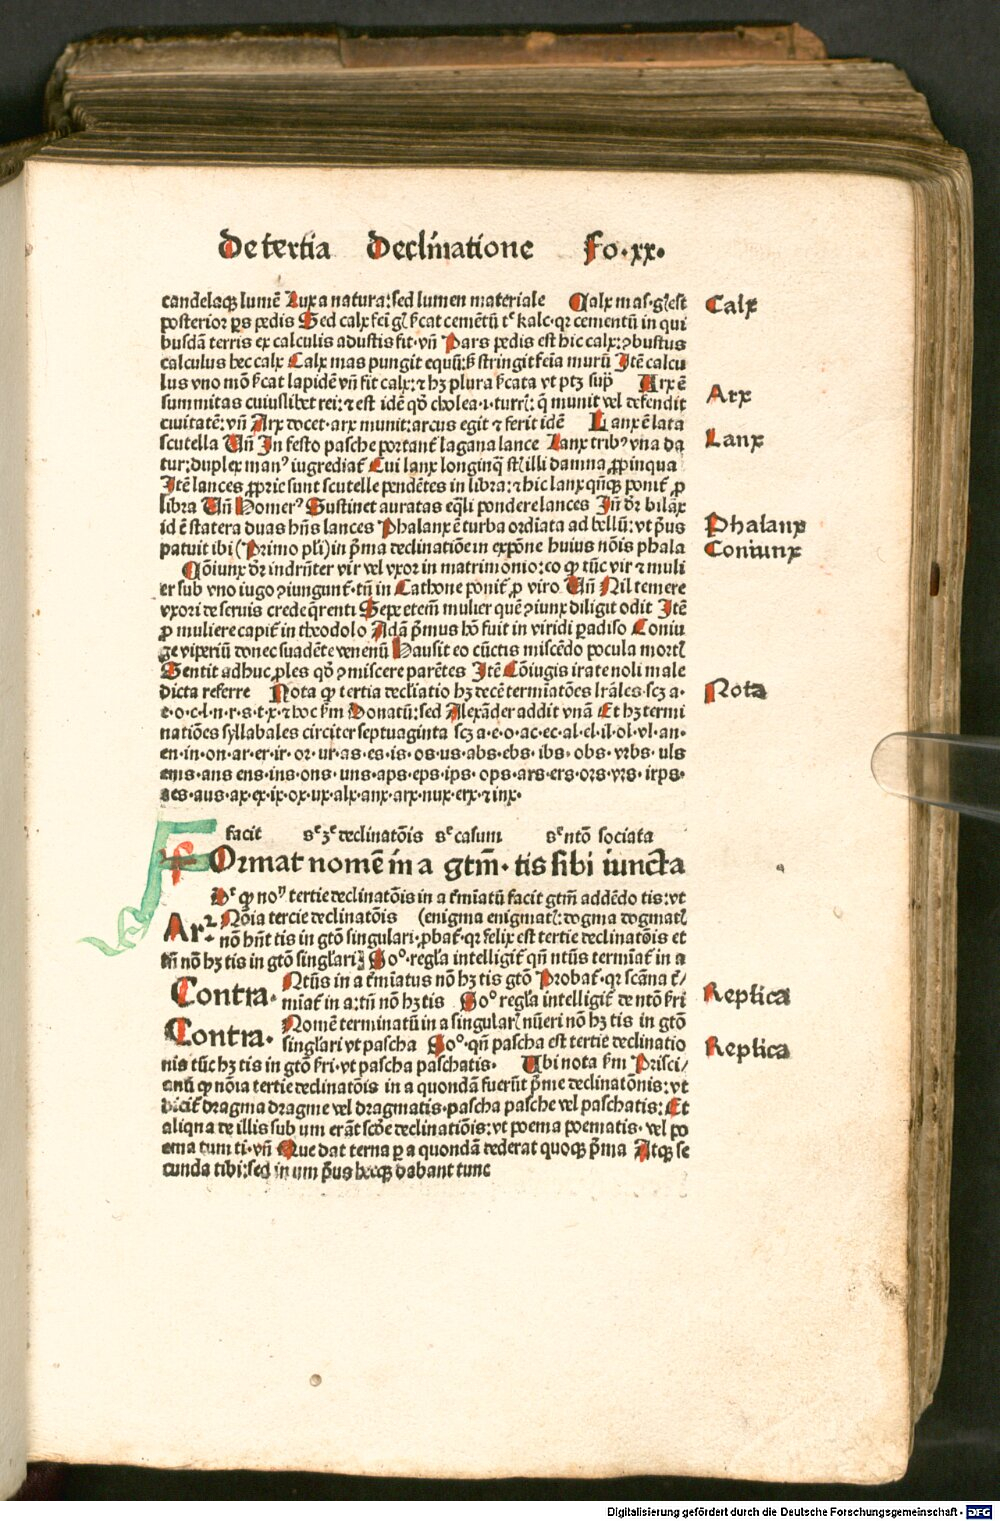 De tertia Declinatione Fo.xx.
candelaqꝫ lumē Lux a natura: sed lumen materiale Calx mas.gl̄ est
Calx
posterior ꝑs pedis Sed calx fei gl̄
cat cemētū
kalc. qꝛ cementū in qui
busdā terris ex calculis adustis fit. vn̄ Pars pedis est hic calx: ꝯbustus
calculus hec calx Calx mas pungit equū:
stringit feīa murū Itē calcu
lus vno mō
cat lapidē vn̄ fit calx: ⁊ hꝫ plura
cata vt ptꝫ
Arx ē
Arx
summitas cuiuslibet rei: ⁊ est idē qd̄ cholea.i.turris: q̄ munit vel defendit
ciuitatē: vn̄ Arx docet. arx munit: arcus egit ⁊ ferit idē Lanx ē lata
scutella Un̄ In festo pasche portant̄ lagana lance Lanx tribꝰ vna da
Lanx
tur: duplex manꝰ iugrediat̄ Cui lanx longinq̄
illi damna ꝓpinqua
Itē lances ꝓprie sunt scutelle pendētes in libra: ⁊ hic lanx qn̄qꝫ ponit̄ ꝓ
libra Un̄ Homerꝰ Sustinet auratas eq̄li pondere lances In̄ dr̄ bilāx
id ē statera duas hn̄s lances Phalanx ē turba ordiata ad bellū: vt p̄us
Phalanx
patuit ibi (Primo pl̄i) in p̄ma declinatiōe in expōne huius nōis phala
Coniunx
Cōiunx dr̄ indrn̄ter vir vel vxor in matrimonio: eo ꝙ tūc vir ⁊ muli
er sub vno iugo ꝯiungunt̄. tn̄ in Cathone ponit̄ ꝓ viro Un̄ Nil temere
vxori de seruis crede q̄renti Sepe etem̄ mulier quē ꝯiunx diligit odit Itē
ꝓ muliere capit̄ in theodolo Adā p̄mus hō fuit in viridi ꝑadiso Coniu
ge viperiū donec suadēte venenū Hausit eo cūctis miscēdo pocula mortꝭ
Sentit adhuc ꝓles qd̄ ꝯmiscere parētes Itē Cōiugis irate noli male
dicta referre Nota ꝙ tertia declīatio hꝫ decē termiatōes lrāles. scꝫ a.
Nota
e.o.c.l.n.r.s.t.x ⁊ hoc
Donatū: sed Alexāder addit vnā Et hꝫ termi
natiōes syllabales circiter septuaginta scꝫ a.e.o.ac.ec.al.el.il.ol.vl.an.
en.in.on.ar.er.ir.or.ur.as.es.is.os.us.abs.ebs.ibs.obs.vrbs.uls
ems.ans ens.ins.ons.uns.aps.eps.ips.ops.ars.ers.ors.vrs.irps.
aes.aus.ax.ex.ix.ox.ux.alx.anx.arx.nux.erx.⁊ inx.
facit
declinatōis
casum
ntō sociata
FOrmat nomē in a gtm̄. tis sibi iuncta
ꝙ
tertie declinatōis in a
miatū facit gtm̄ addēdo tis: vt
Nōia tercie declinatōis (enigma enigmatꝭ: dogma dogmatꝭ
Ar
nō hn̄t tis in gtō singulari. ꝓbat̄. qꝛ felix est tertie declinatōis et
tn̄ nō hꝫ tis in gtō singl̄ari Soº. regl̄a intelligit̄ qn̄ ntūs termiat̄ in a
Ntūs in a
miatus nō hꝫ tis gtō Probat̄. qꝛ scāna
Contra.
Replica
miat̄ in a: tn̄ nō hꝫ tis Soº regl̄a intelligit̄ de ntō
Nomē terminatū in a singularꝭ nūeri nō hꝫ tis in gtō
Contra.
Replica
singl̄ari vt pascha Soº. qn̄ pascha est tertie declinatio
nis tūc hꝫ tis in gtō
vt pascha paschatis. Ubi nota
Prisci/
anū ꝙ nōia tertie declinatōis in a quondā fuerūt p̄me declinatōnis: vt
dicit̄ dragma dragme vel dragmatis. pascha pasche vel paschatis: Et
aliqua de illis sub um erāt scd̄e declinatiōis: vt poema poematis. vel po
ema tum ti. vn̄ Que dat terna ꝑ a quondā dederat quoqꝫ p̄ma Atqꝫ se
cunda tibi: sed in um p̄us hecqꝫ dabant tunc
Digitalisierung gefördert durch die Deutsche Forschungsgemeinschaft - DFG